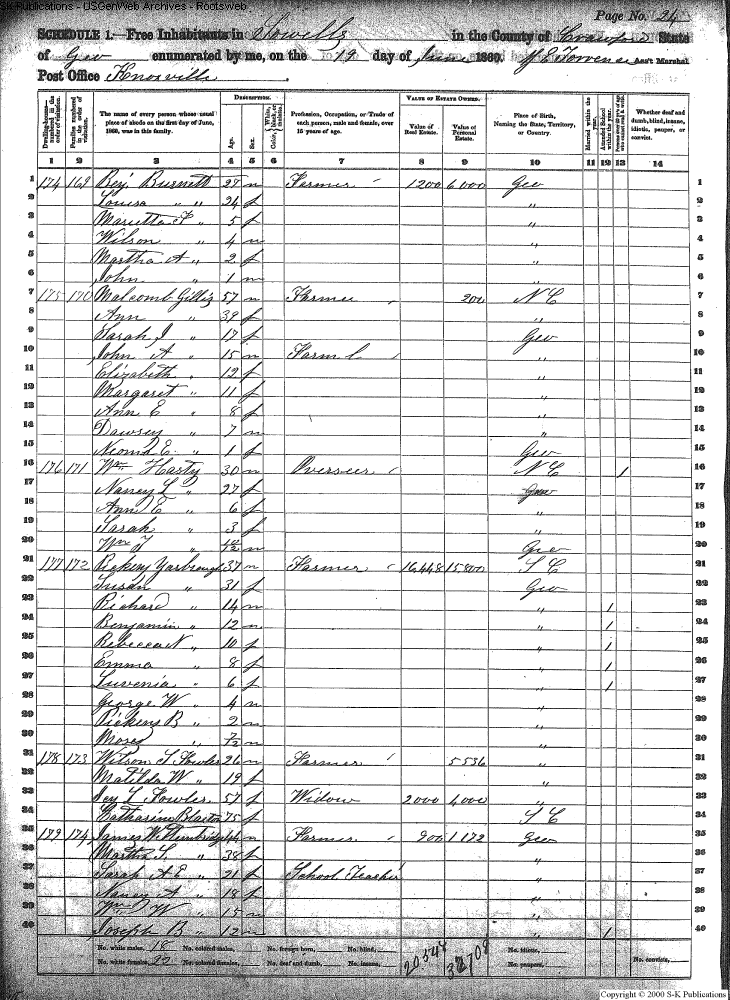 S-K Publications - USGenWeb Archives - Rootsweb
Page No. 24
SCHEDULE 1.—Free Inhabitants in Howells in the County of Crawford State
of Geo enumerated by me, on the 19 day of June 1860. Ass't Marshal
Post Office Knoxville
Dwelling-house— numbered in the order of visitation.
Families numbered in the order of visitation.
The name of every person whose usual place of abode on the first day of June, 1860, was in this family.
DESCRIPTION.
Age.
Sex.
Color, White, black, or mulatto.
Profession, Occupation, or Trade of each person, male and female, over 15 years of age.
VALUE OF ESTATE OWNED.
Value of Real Estate.
Value of Personal Estate.
Place of Birth, Naming the State, Territory, or Country.
Married within the year.
Attended School within the year.
Persons over 20 y'rs of age who cannot read & write.
Whether deaf and dumb, blind, insane, idiotic, pauper, or convict.
1 2 3 4 5 6 7 8 9 10 11 12 13 14
1 174 169 Benj Burnett 28 m Farmer 1200 6000 Geo 1
2 Louisa " " 24 f " 2
3 Marietta F " 5 f " 3
4 Wilson " 4 m " 4
5 Martha A " 2 f " 5
6 John " 1 m " 6
7 175 170 Malcomb Gillis 57 m Farmer 200 N C 7
8 Ann " 39 f " 8
9 Sarah J " 17 f Geo 9
10 John A " 15 m Farm L " 10
11 Elizabeth " 12 f " 11
12 Margaret " 11 f " 12
13 Ann E " 8 f " 13
14 Dawsey " 7 m " 14
15 Neomi E " 1 f Geo 15
16 176 171 Wm Hasty 30 m Overseer N C 1 16
17 Nancy L " 27 f Geo 17
18 Ann E " 6 f " 18
19 Sarah " 3 f " 19
20 Wm J " m Geo 20
21 177 172 Pickens Yarbrough 37 m Farmer 16,448 15,800 S C 21
22 Susan " 31 f Geo 22
23 Richard " 14 m " 1 23
24 Benjamin " 12 m " 1 24
25 Rebecca N " 10 f " 1 25
26 Emma " 8 f " 1 26
27 Luvenia " 6 f " 1 27
28 George W " 4 m " 28
29 Pickens B " 2 m " 29
30 Moses " 7/12 m " 30
31 178 173 Wilson S Fowler 26 m Farmer 5536 " 31
32 Matilda W " 19 f " 32
33 L Fowler 57 f Widow 2000 4,000 " 33
34 Catharine 75 f S C 34
35 179 174 James W 44 m Farmer 900 1,172 Geo 35
36 Martha S. " 38 f " 36
37 Sarah A E " 21 f School Teacher " 37
38 Nancy A " 18 f " 38
39 Wm W " 15 m " 39
40 Joseph B " 12 m " 1 40
No. white males, 18 No. colored males, No. foreign born, No. blind, 20,548 No. idiotic, No. convicts,
No. white females, 22 No. colored females, No. deaf and dumb, No. insane, No. paupers,
Copyright © 2000 S-K Publications